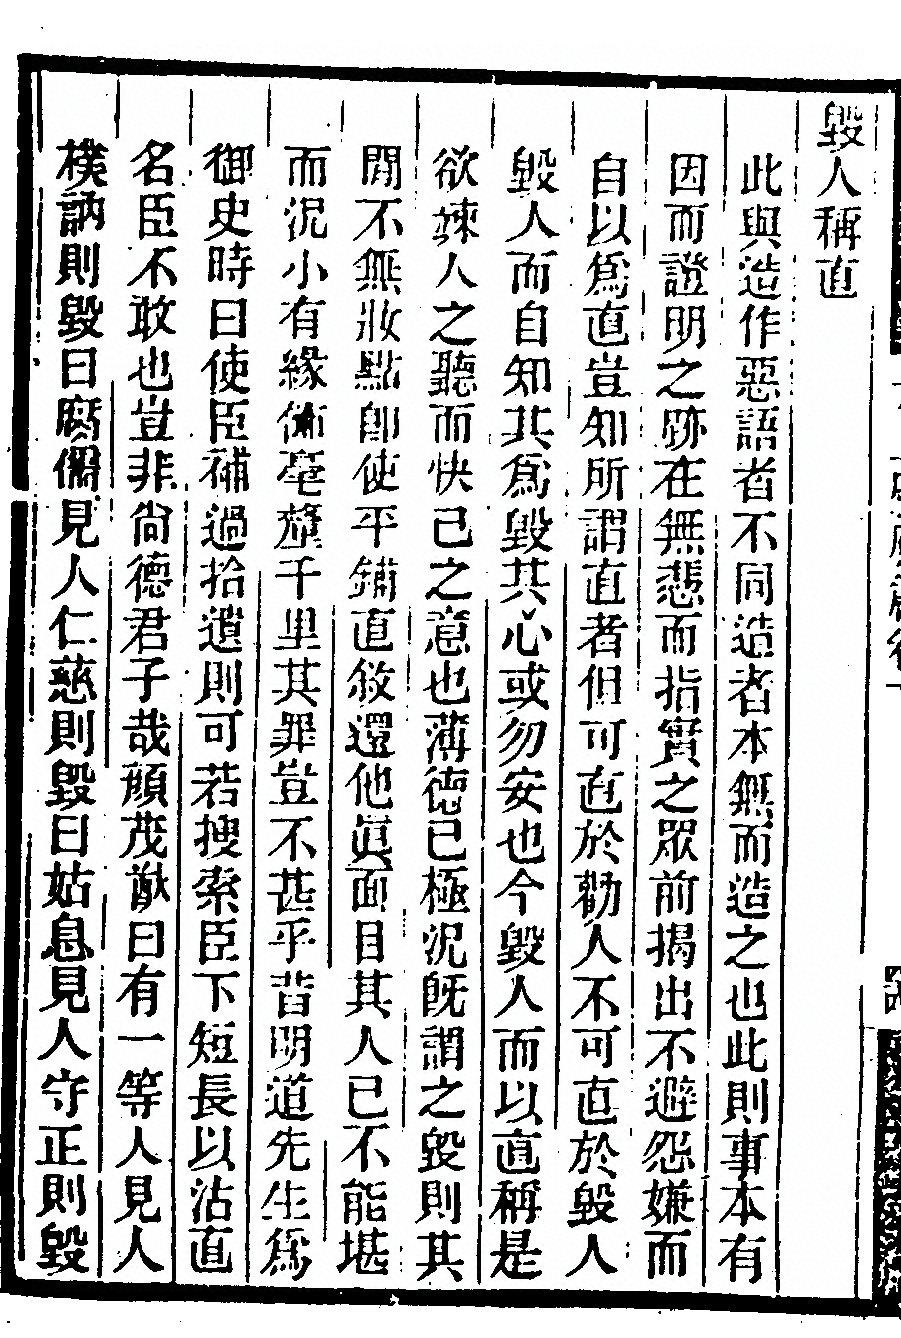 毀人稱直
此與造作惡語者不同造者本無而造之也此則事本有
因而證明之跡在無悲而指實之眾前揭出不避怨嫌而
自以爲直豈知所謂直者但可直於勸人不可直於毀人
毀人而自知其爲毀其心或勿安也今毀人而以直稱是
欲竦人之聽而快己之意也薄德已極況旣謂之毀則其
閒不無妝點卽使平鋪直敘還他眞面目其人已不能堪
而況小有緣飾毫釐千里其罪豈不甚乎昔明道先生爲
御史時曰使臣補過拾遺則可若搜索臣下短長以沽直
名臣不敢也豈非尙德君子哉顏茂猷曰有一等人見人
樸訥則毀曰腐儒見人仁慈則毀曰姑息見人守正則毀